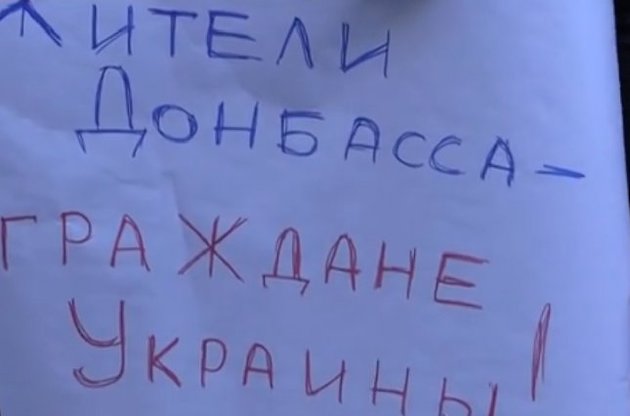 ЖИТЕЛИ
ДОНБАССА –
ГРАЖДАНЕ
УКРАИНЫ!